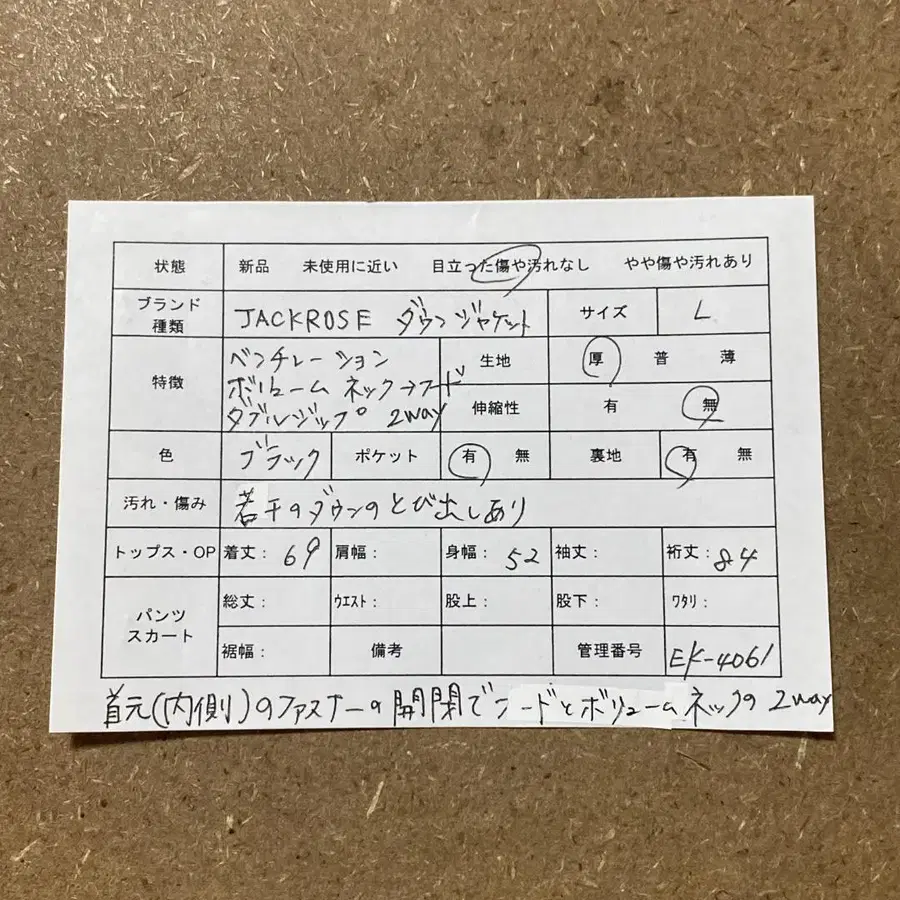 状態 新品 未使用に近い 目立った傷や汚れなし やや傷や汚れあり
ブランド種類 JACKROSE ダウンジャケット サイズ L
特徴 ベンチレーション
ボリュームネック→フード
ダブルジップ 2way
生地 厚 普 薄
伸縮性 有 無
色 ブラック ポケット 有 無 裏地 有 無
汚れ・傷み 若干のダウンのとび出しあり
トップス・OP 着丈: 69 肩幅: 身幅: 52 袖丈: 裄丈: 84
パンツ
スカート
総丈: ウエスト: 股上: 股下: ワタリ:
裾幅: 備考 管理番号 EK-4061
首元(内側)のファスナーの開閉でフードとボリュームネックの2way